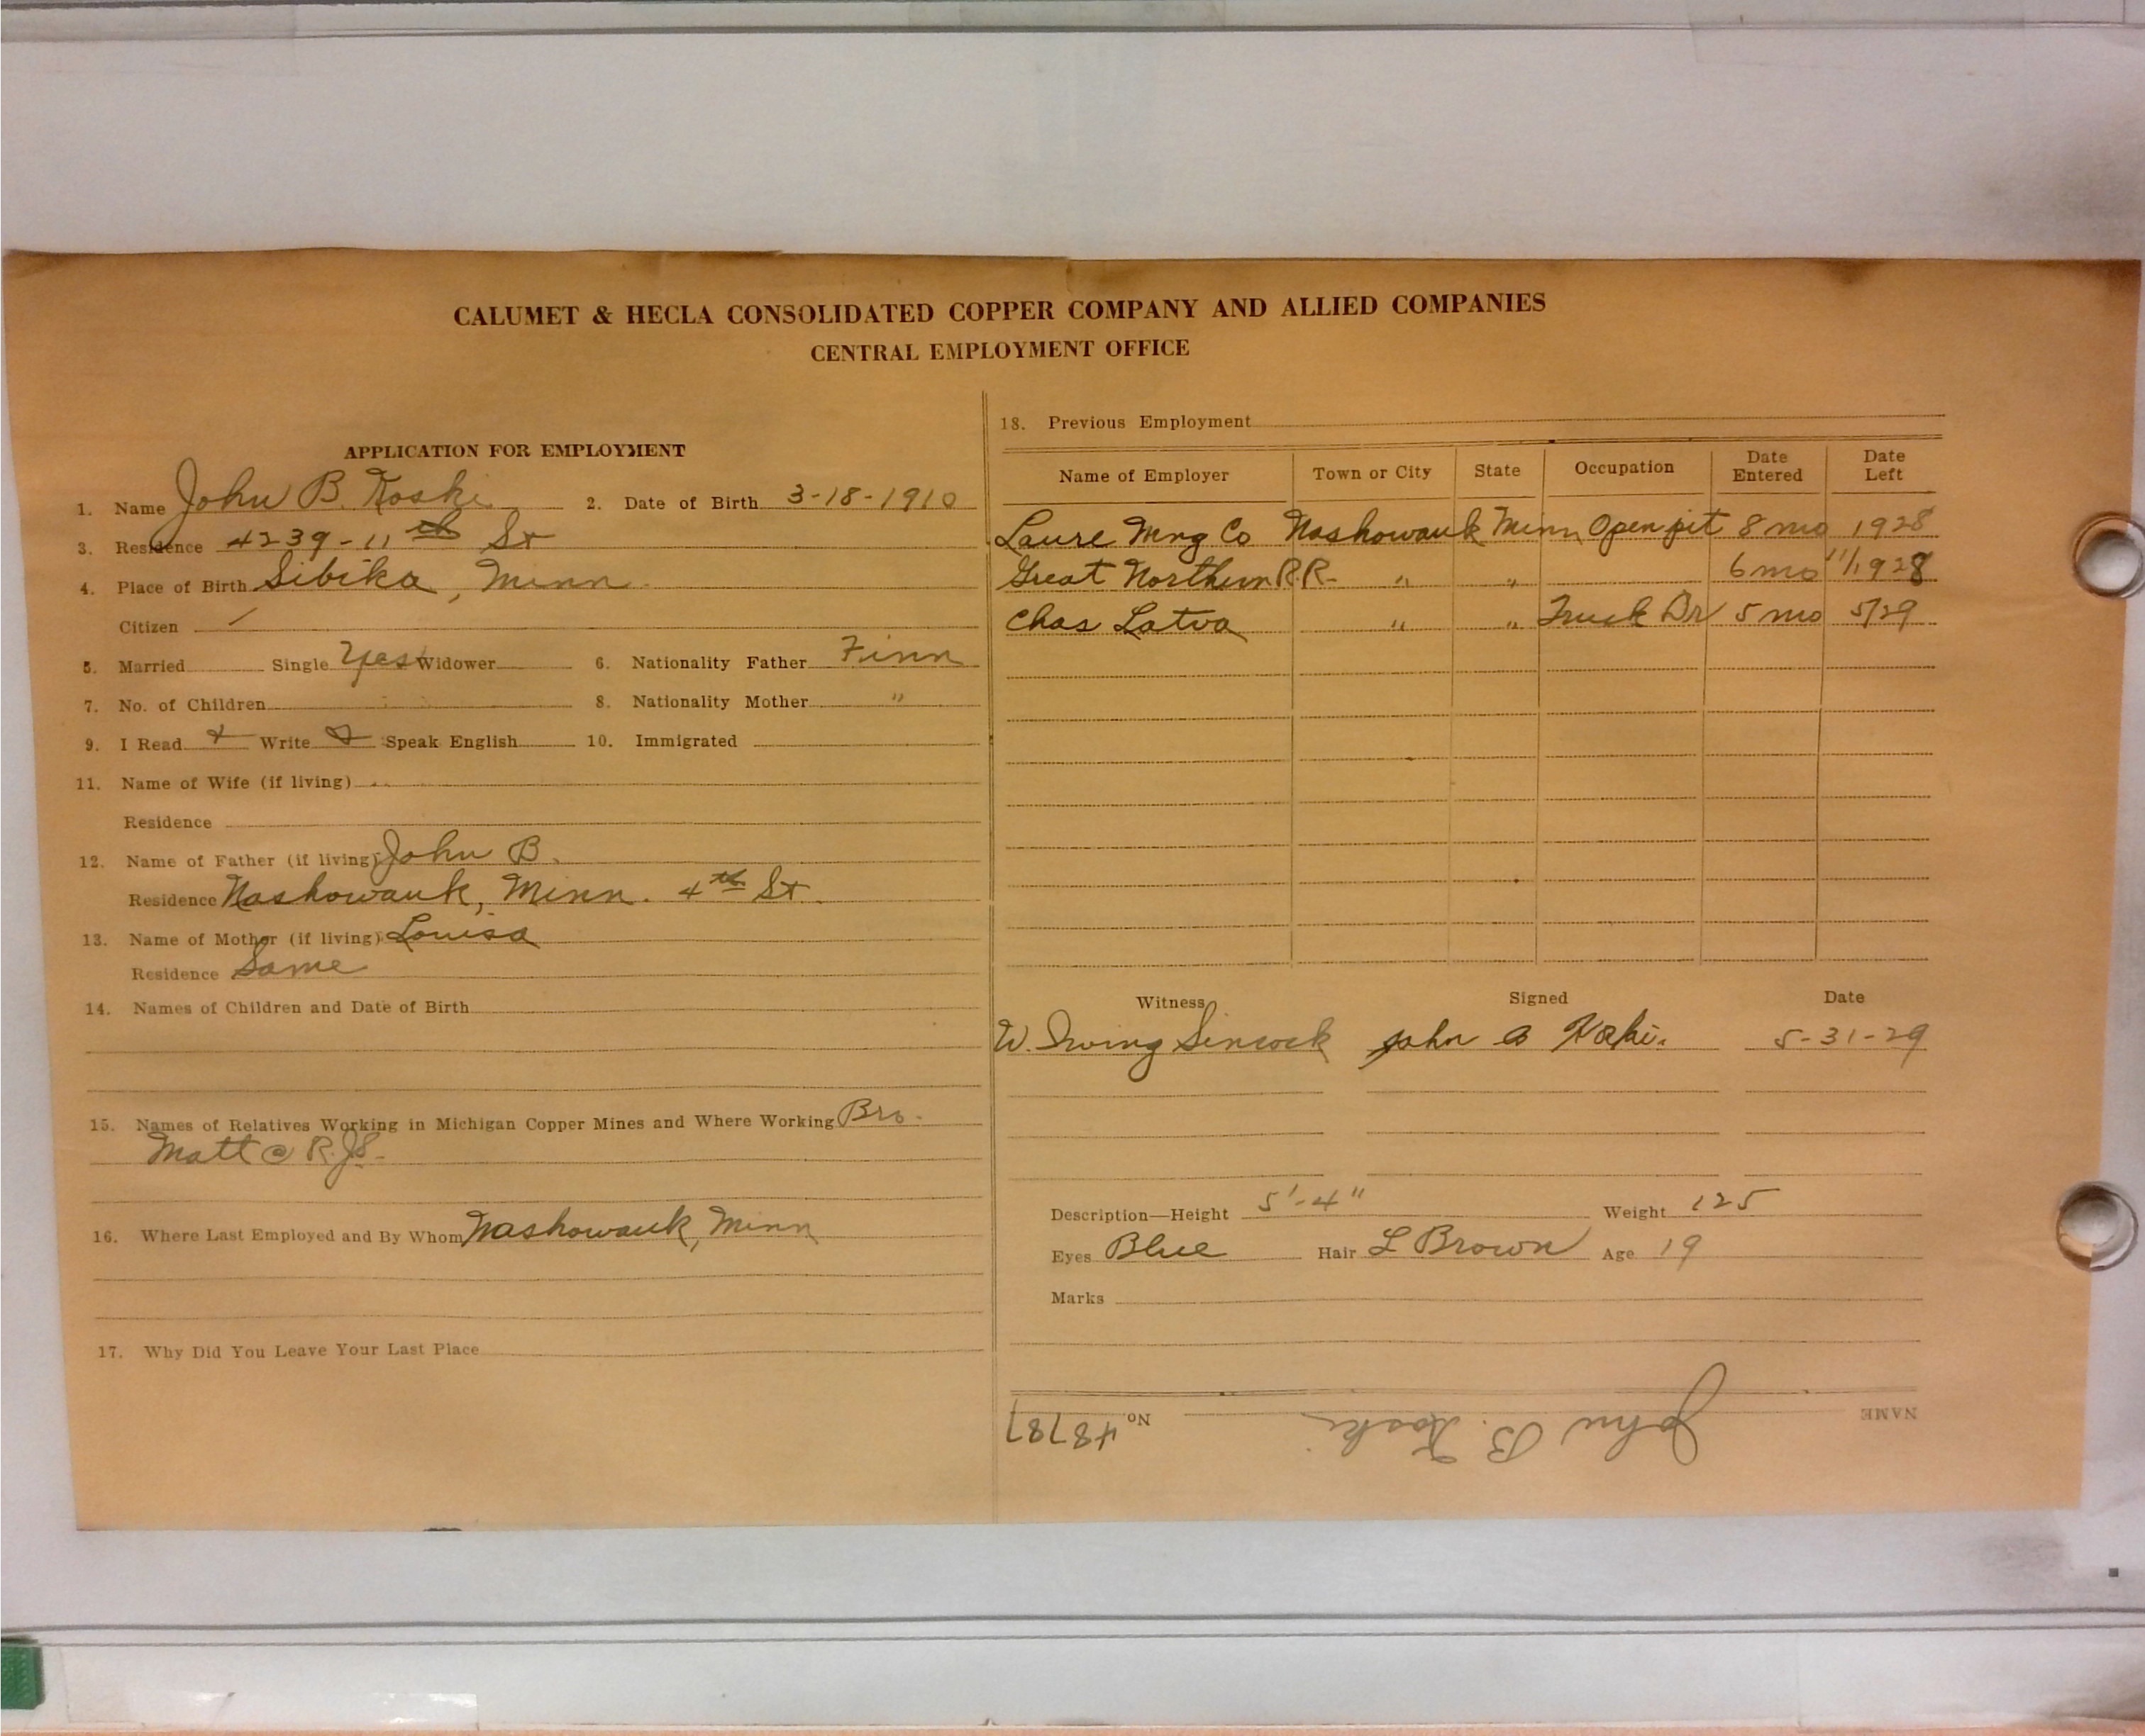 CALUMET & HECLA CONSOLIDATED COPPER COMPANY AND ALLIED COMPANIES
CENTRAL EMPLOYMENT OFFICE
APPLICATION FOR EMPLOYMENT
1. Name John B. Koski 2. Date of Birth 3-18-1910
3. Residence 4239-11th St
4. Place of Birth Sibika, Minn
Citizen /
5. Married Single Yes Widower 6. Nationality Father Finn
7. No. of Children 8. Nationality Mother "
9. I Read Write Speak English 10. Immigrated
11. Name of Wife (if living)
Residence
12. Name of Father (if living) John B.
Residence Nashowauk, Minn. 4th St.
13. Name of Mother (if living) Louisa
Residence Same
14. Names of Children and Date of Birth
15. Names of Relatives Working in Michigan Copper Mines and Where Working Bro.
Matt @ R.
16. Where Last Employed and By Whom Nashowauk, Minn
17. Why Did You Leave Your Last Place
18. Previous Employment
Name of Employer Town or City State Occupation Date Entered Date Left
Laure Mng Co Nashowauk Minn Open pit 8 mo 1928
Great Northern R.R. " " 6 mo 11/1928
Chas Latva " " Truck Dr 5 mo 5/29
Witness Signed Date
W. Irving Sincock John B Koski. 5-31-29
Description—Height 5'-4" Weight 125
Eyes Blue Hair L Brown Age 19
Marks
NAME John B. Koski No. 48787